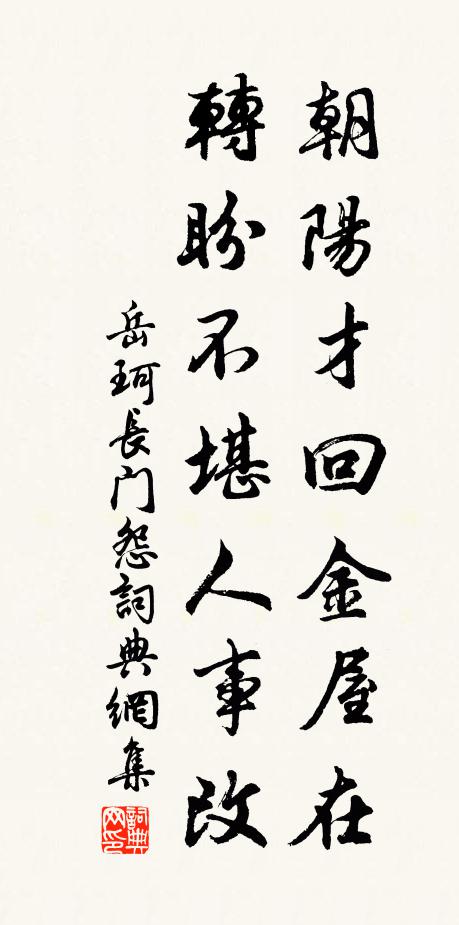 朝陽才回金屋在
轉盼不堪人事改
岳珂長門怨詞典網集
詞典网印